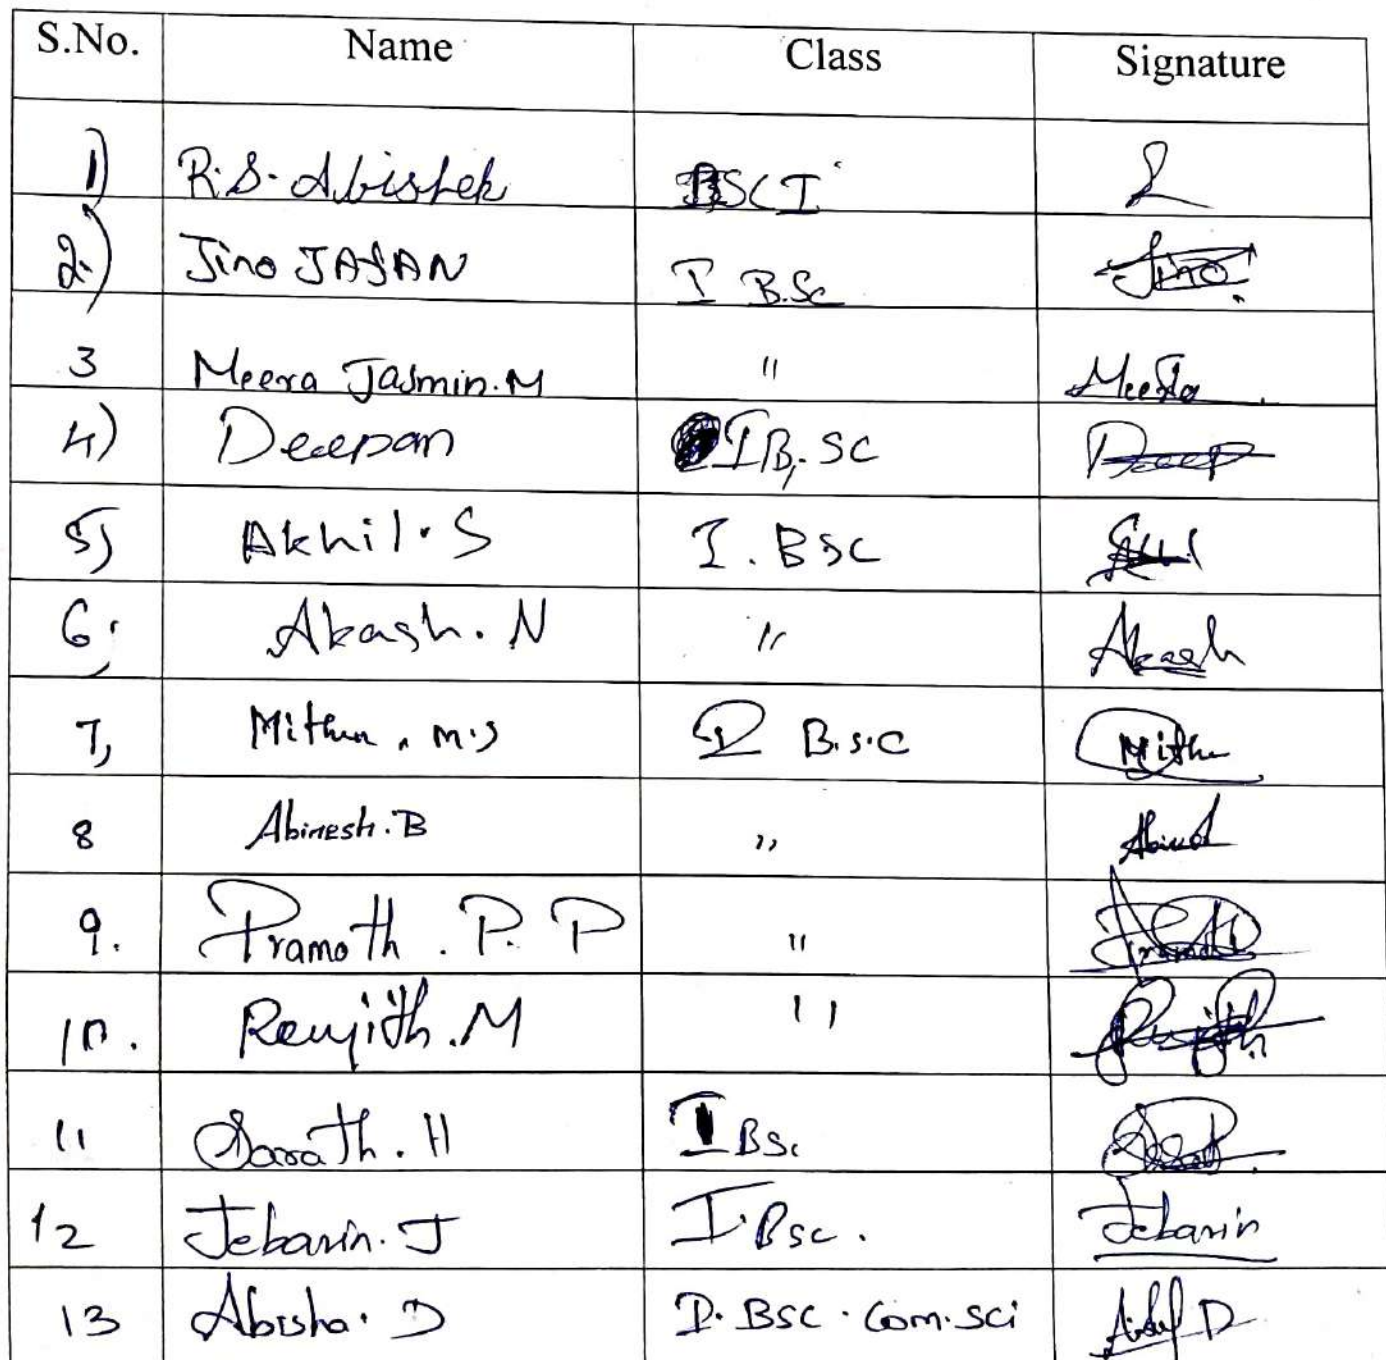 S.No. Name Class Signature
1) R.S. Abishek BSC I
2.) Jino JASAN I B.Sc Jino
3 Meera Jasmin.M " Meera
4) Deepan I B.SC Deep
5) Akhil.S I. BSC Akhil
6; Akash. N " Akash
7, Mithun. M.S I B.S.C Mithu
8 Abinesh.B "
9. Pramoth. P. P " Pramoth
10. Renjith.M " Renjith
11 Sarath. H I BSc
12 Jebarin. J I. Bsc. Jebarin
13 Abisha. D I. BSC. Com.sci